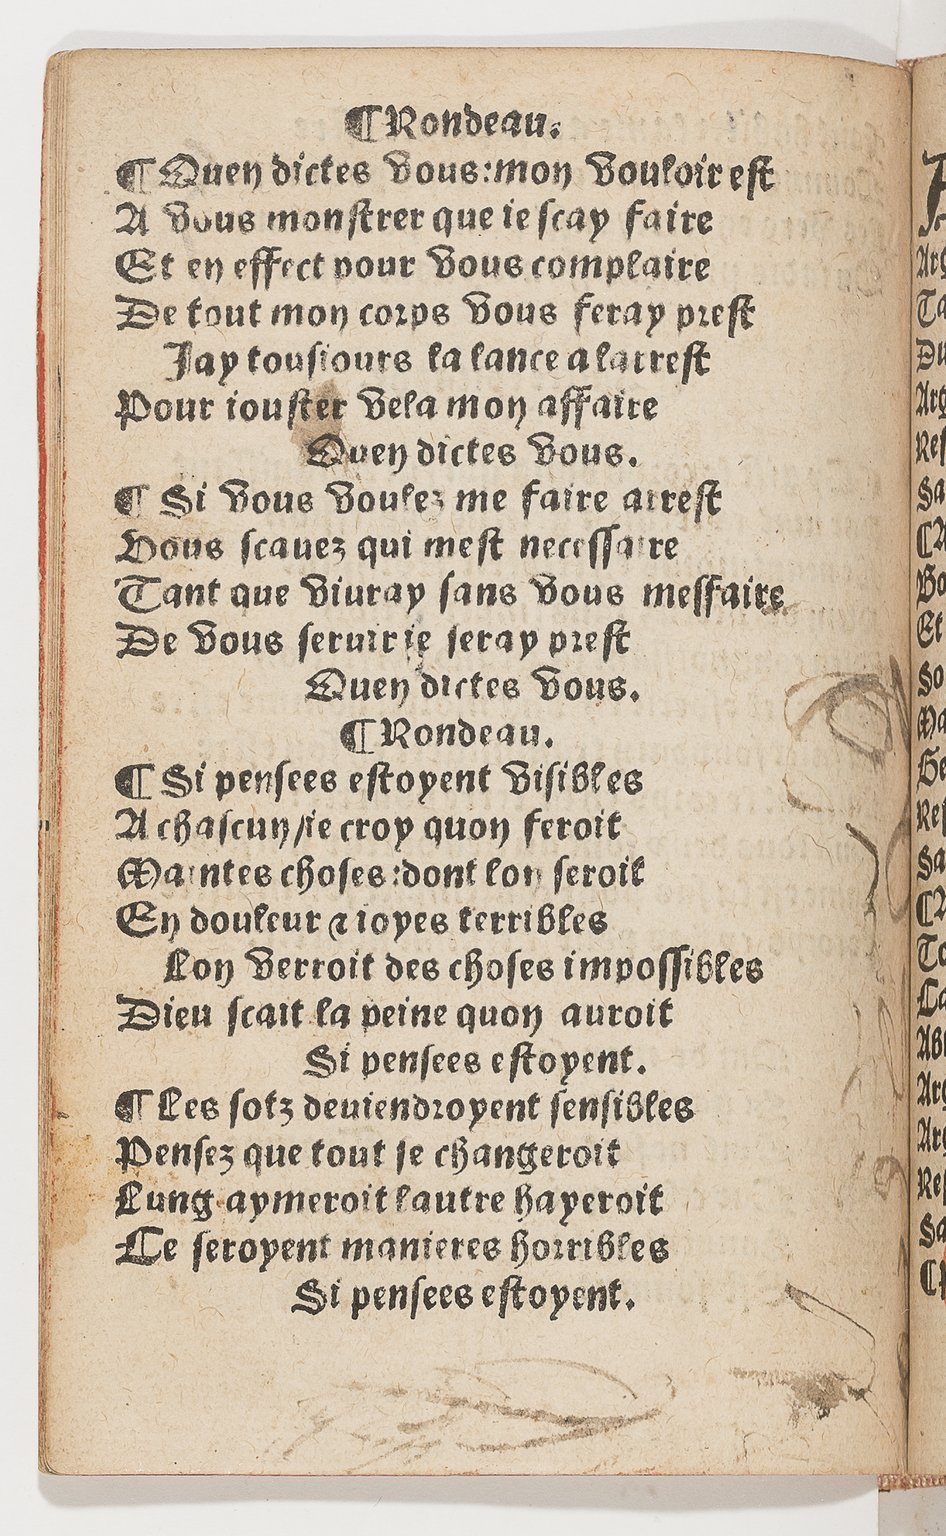 ¶Rondeau.
¶Quen dictes vous:mon vouloir est
A vous monstrer que ie scay faire
Et en effect pour vous complaire
De tout mon corps vous feray prest
Jay tousiours la lance a larrest
Pour iouster vela mon affaire
Quen dictes vous.
¶Si vous voulez me faire arrest
Vous scauez qui mest necessaire
Tant que viuray sans vous messfaire
De vous seruir ie seray prest
Quen dictes vous.
¶Rondeau.
¶Si pensees estoyent visibles
A chascun/ie croy quon feroit
Maintes choses:dont lon seroit
En douleur ⁊ ioyes terribles
Lon verroit des choses impossibles
Dieu scait la peine quon auroit
Si pensees estoyent.
¶Les sotz deuiendroyent sensibles
Pensez que tout se changeroit
Lung aymeroit lautre hayeroit
Ce seroyent manieres horribles
Si pensees estoyent.